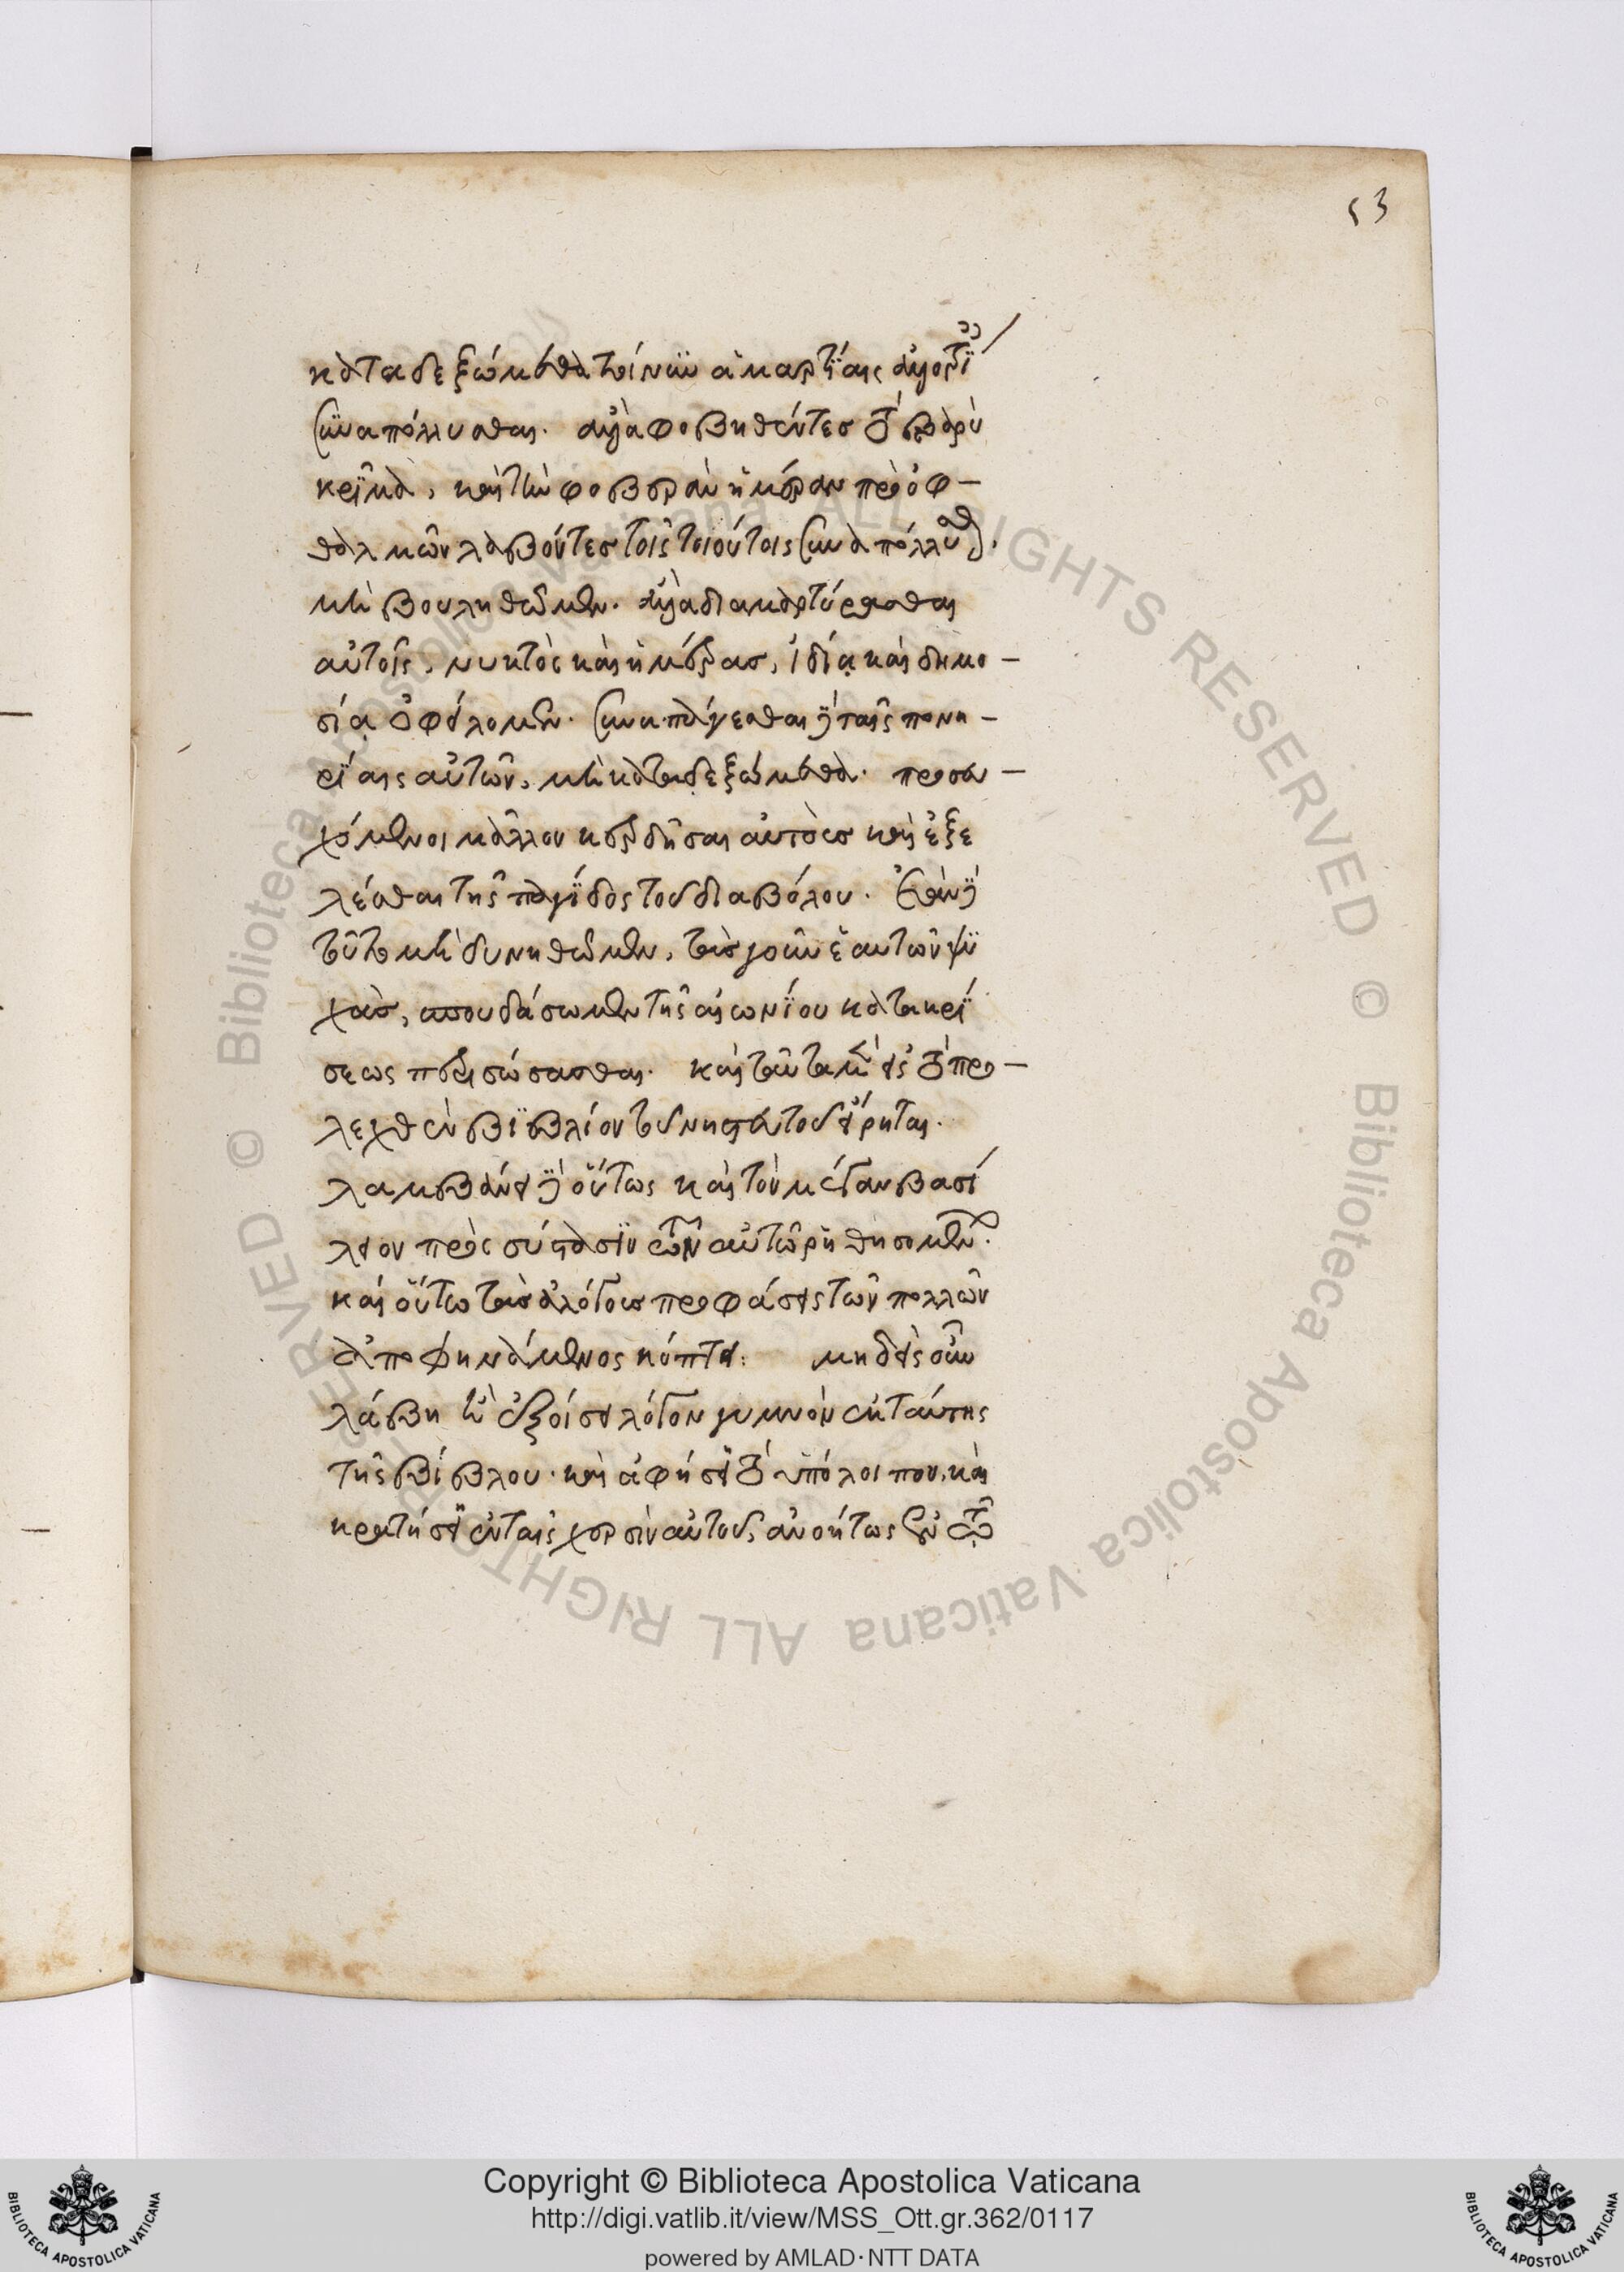 53
καταδεξώμεθα τοίνυν ἁμαρτίαις ἀλλοτρί
συναπόλλυσθαι. ἀλλὰ φοβηθέντες τὸ βαρὺ
κρῖμα, καὶ τὴν φοβερὰν ἡμέραν πρὸ ὀφ-
θαλμῶν λαβόντες τοῖς τοιούτοις συναπόλλυσθαι.
μὴ βουληθῶμεν. ἀλλὰ διαμαρτύρεσθαι
αὐτοῖς, νυκτὸς καὶ ἡμέρας, ἰδίᾳ καὶ δημο-
σίᾳ ὀφείλομεν. συναπάγεσθαι δὲ ταῖς πονη-
ρίαις αὐτῶν, μὴ καταδεξώμεθα. προσευ-
χόμενοι μᾶλλον κερδῆσαι αὐτοὺς καὶ ἐξε
λέσθαι τῆς παγίδος τοῦ διαβόλου. ἐὰν δὲ
τοῦτο μὴ δυνηθῶμεν, τὰς γοῦν ἑαυτῶν ψυ
χὰς, σπουδάσωμεν τῆς αἰωνίου κατακρί
σεως περισώσασθαι. καὶ ταῦτα μὲν εἰς τὸ προ-
λεχθὲν βιβλίον τοῦ νηστευτοῦ εἴρηται.
λαμβάνει δὲ οὕτως καὶ τὸν μέγαν βασί
λειον πρὸς σύστασιν τῶν αὐτῷ ῥηθησομένων.
καὶ οὕτω τὰς ἀλόγους προφάσεις τῶν πολλῶν
ἀποφηνάμενος κόπτει: μηδεὶς οὖν
λάβῃ ἐξοίσει λόγον γυμνὸν ἐκ ταύτης
τῆς βίβλου. καὶ ἀφήσει τὸ ὑπόλοιπον, καὶ
κρατήσει ἐν ταῖς χερσὶν αὐτοῦ, ἀνοήτως
Copyright © Biblioteca Apostolica Vaticana
http://digi.vatlib.it/view/MSS_Ott.gr.362/0117
powered by AMLAD·NTT DATA
BIBLIOTECA APOSTOLICA VATICANA
BIBLIOTECA APOSTOLICA VATICANA
© Biblioteca Apostolica Vaticana ALL RIGHTS RESERVED © Biblioteca Apostolica Vaticana ALL RIGHTS RESERVED